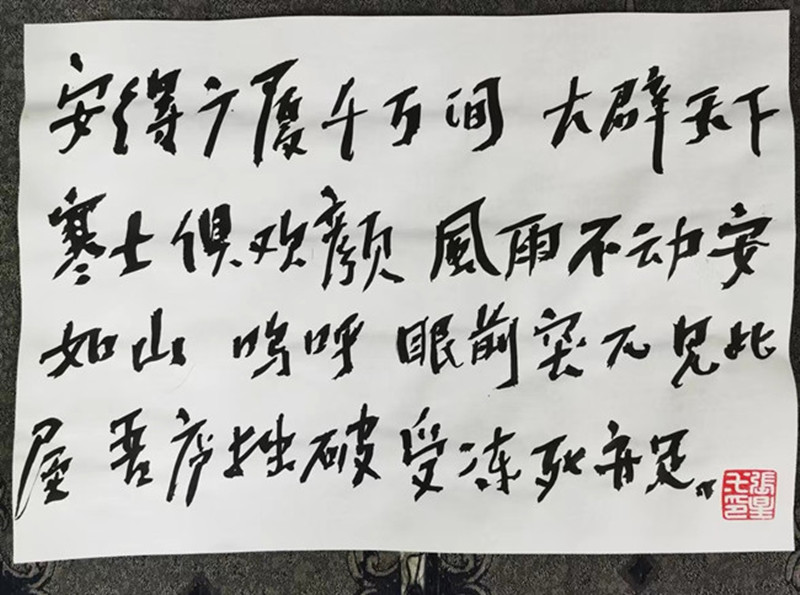 安得广厦千万间 大辟天下
寒士俱欢颜 風雨不动安
如山 呜呼 眼前突兀見此
屋 吾庐独破受冻死亦足。